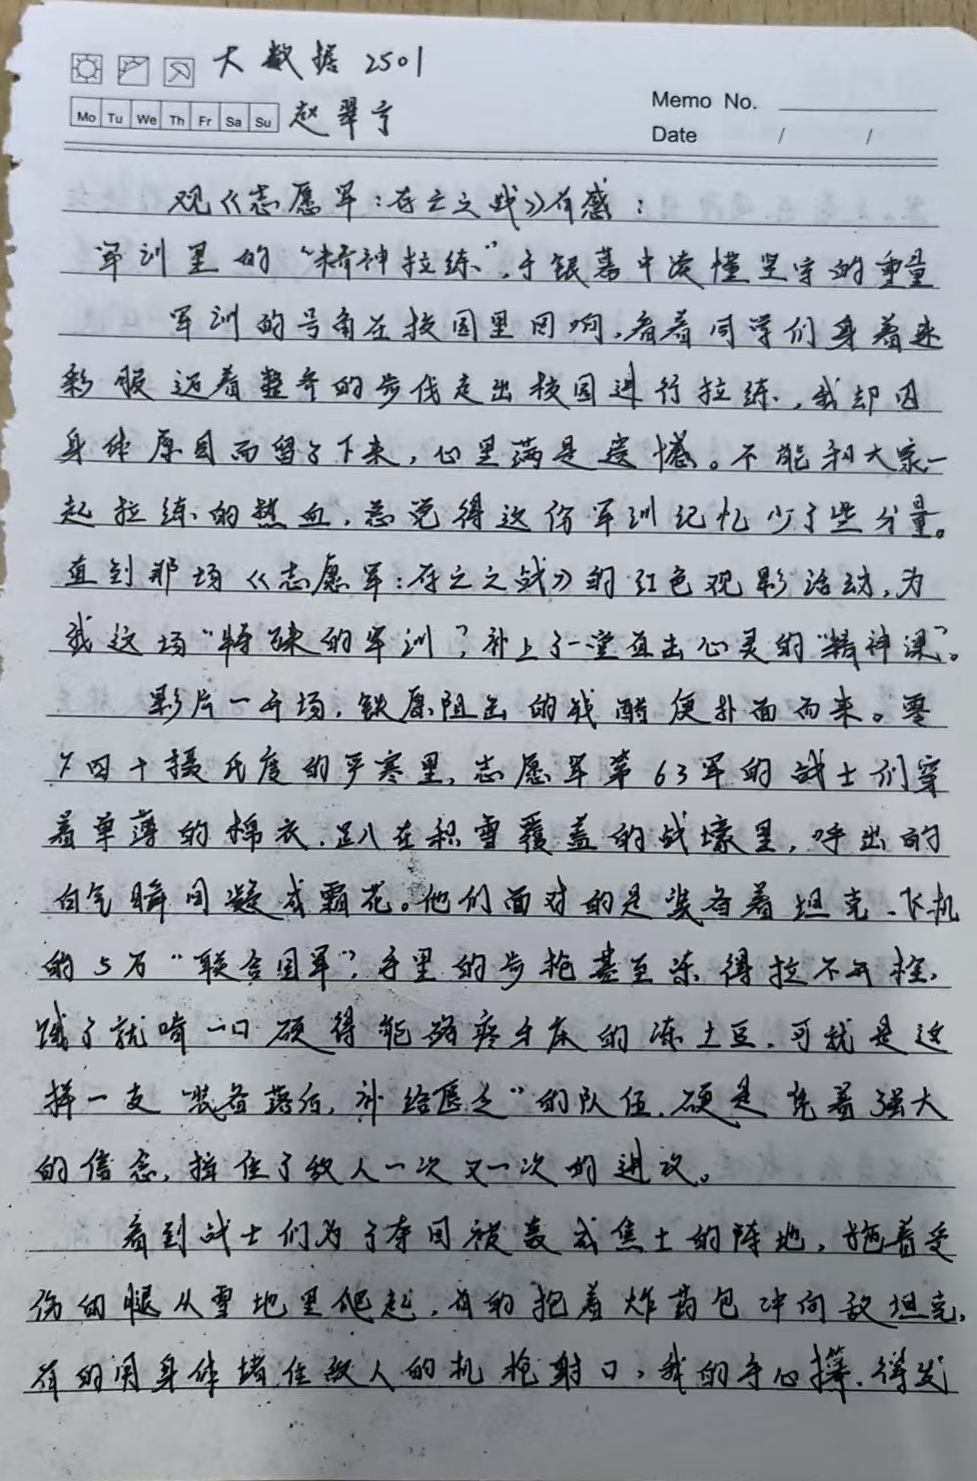 大数据 2501
Mo Tu We Th Fr Sa Su 赵翠亨
Memo No.
Date / /
观《志愿军：存亡之战》有感：
军训里的“精神拉练”，于银幕中读懂坚守的重量
军训的号角在校园里回响，看着同学们身着迷
彩服迈着整齐的步伐走出校园进行拉练，我却因
身体原因而留了下来，心里满是遗憾。不能和大家一
起拉练的热血，总觉得这份军训记忆少了些分量。
直到那场《志愿军：存亡之战》的红色观影活动，为
我这场“特殊的军训”，补上了一堂直击心灵的“精神课”。
影片一开场，铁原阻击的战酣便扑面而来。零
下四十摄氏度的严寒里，志愿军第63军的战士们穿
着单薄的棉衣，趴在积雪覆盖的战壕里，呼出的
白气瞬间凝成霜花。他们面对的是装备着坦克、飞机
的5万“联合国军”，手里的步枪甚至冻得拉不开栓，
饿了就啃一口硬得能硌疼牙床的冻土豆，可就是这
样一支“装备落后，补给匮乏”的队伍，硬是凭着强大
的信念，挡住了敌人一次又一次的进攻。
看到战士们为了夺回被轰成焦土的阵地，拖着受
伤的腿从雪地里爬起，有的抱着炸药包冲向敌坦克，
有的用身体堵住敌人的机枪射口，我的手心攥得发